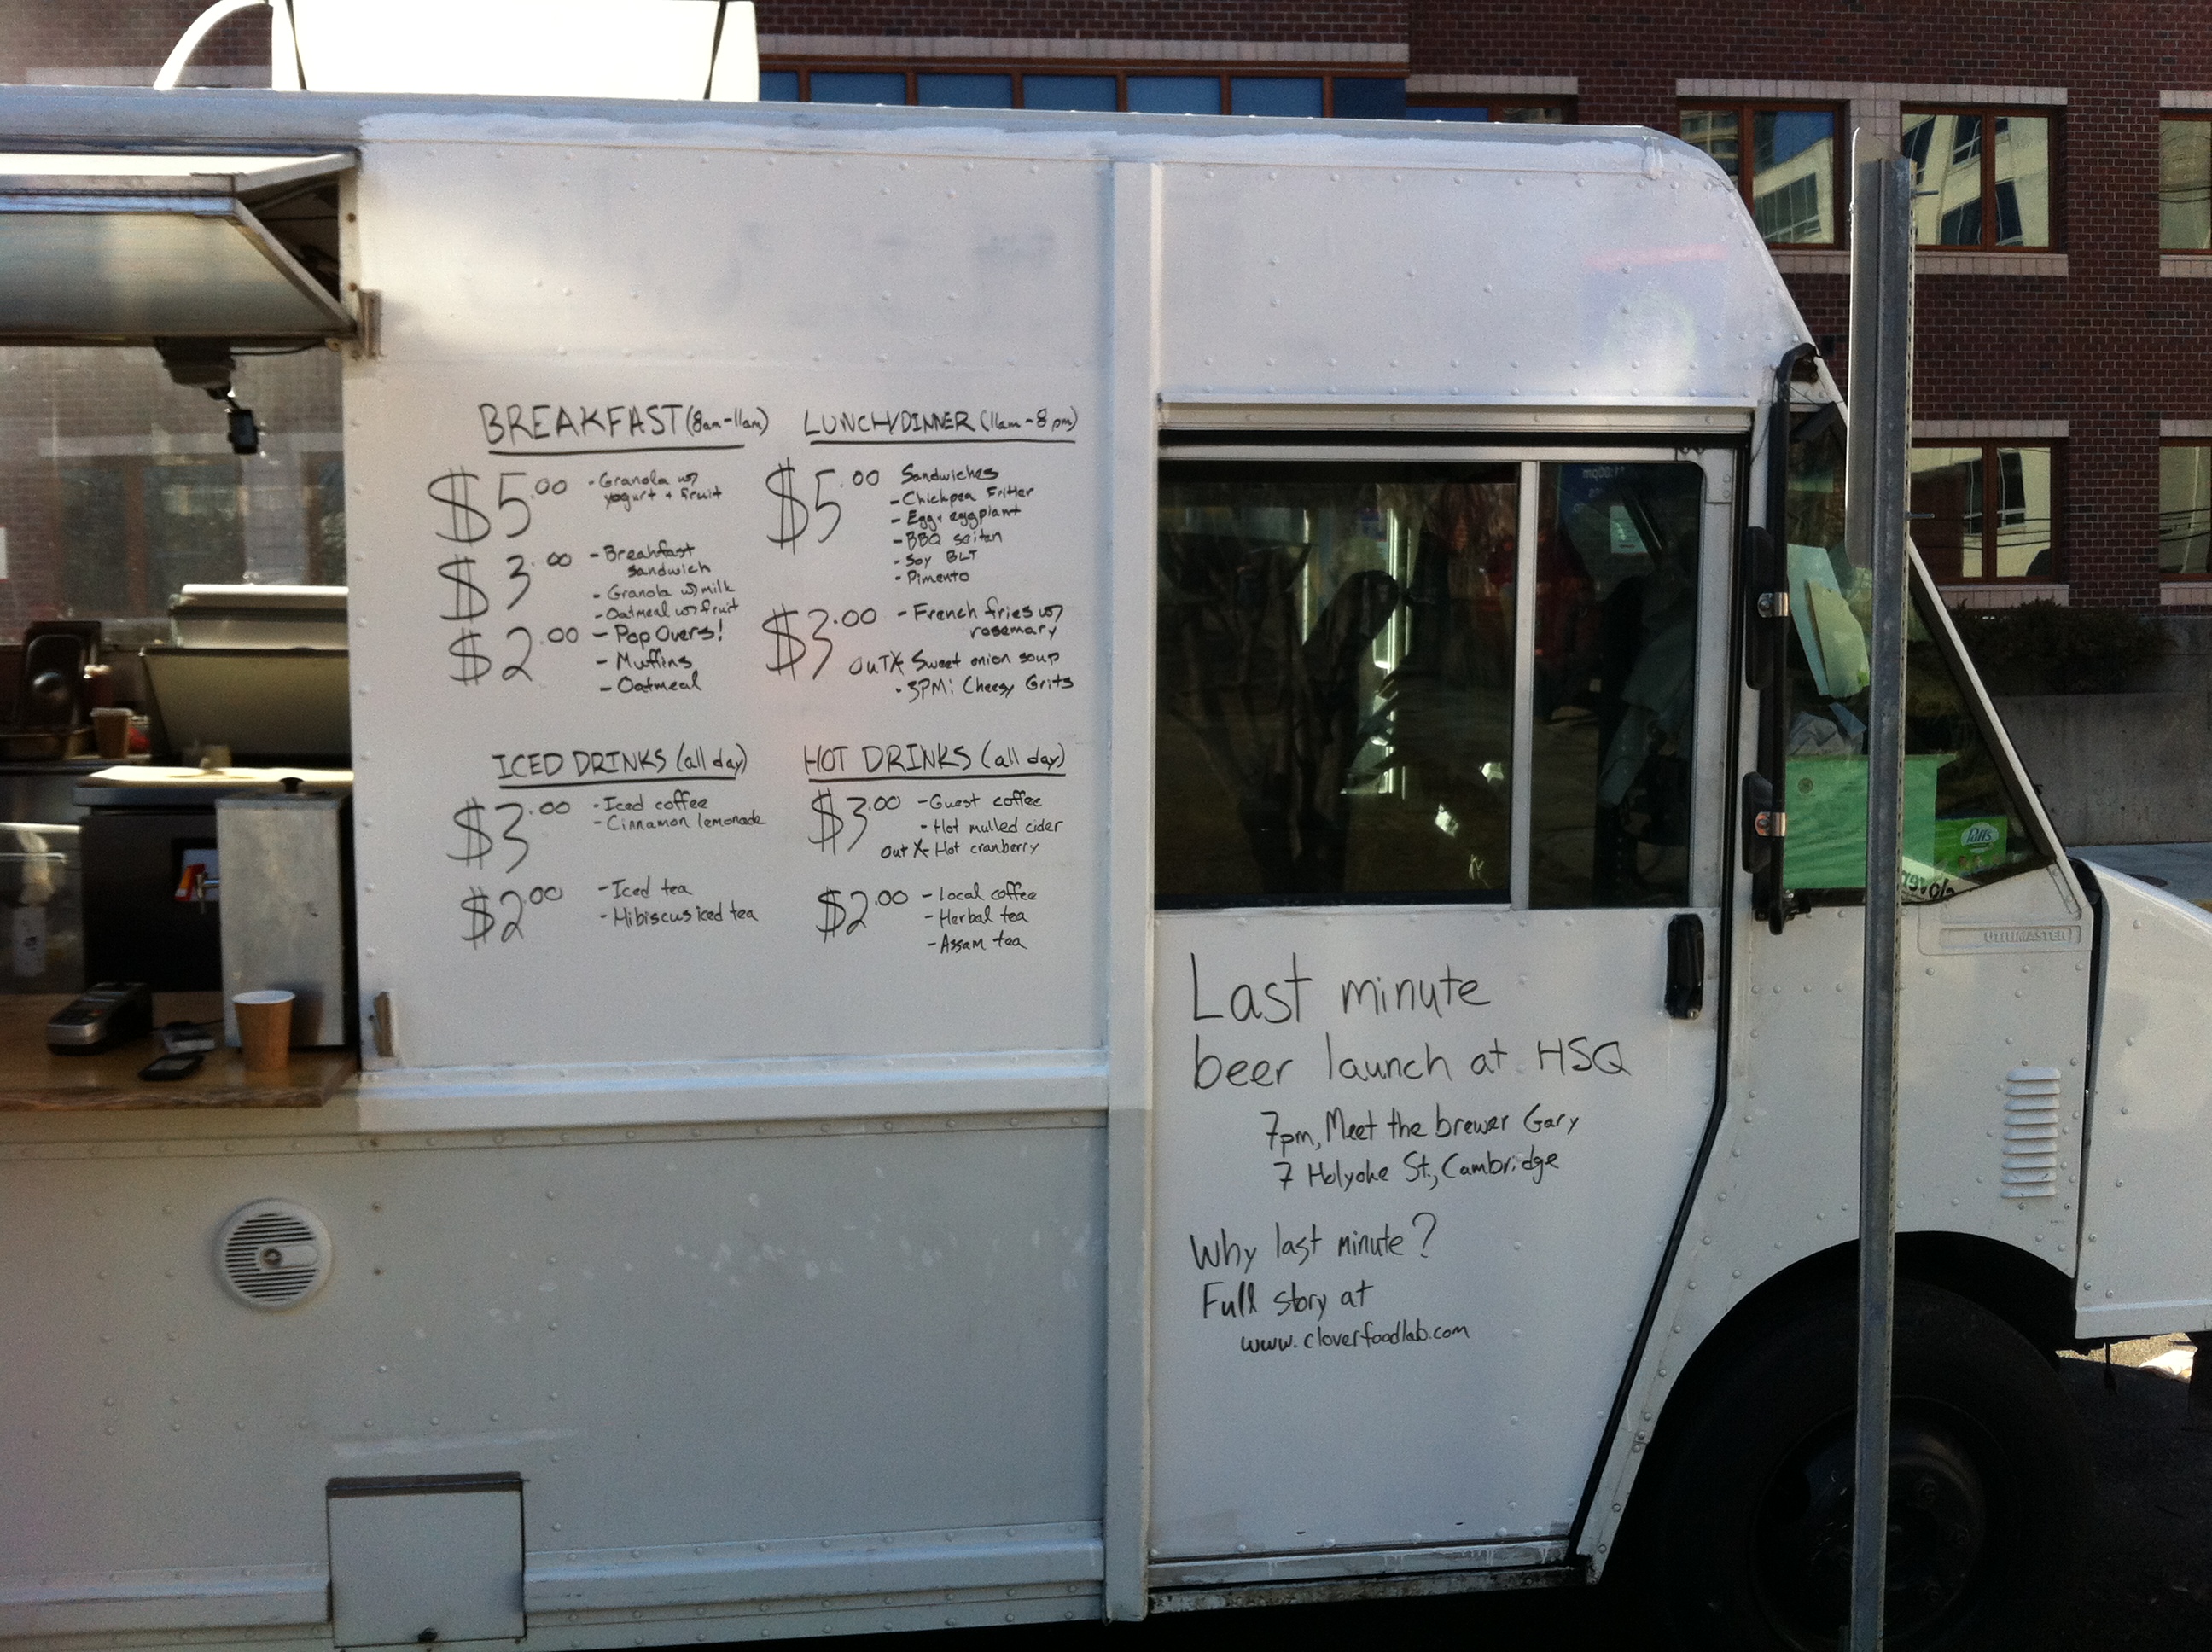 BREAKFAST (8am-11am)
$5.00 - Granola w/
yogurt + fruit
$3.00 - Breakfast
sandwich
- Granola w/ milk
- Oatmeal w/ fruit
$2.00 - Pop Overs!
- Muffins
- Oatmeal
LUNCH/DINNER (11am-8pm)
$5.00 Sandwiches
- Chickpea Fritter
- Egg + eggplant
- BBQ seitan
- Soy BLT
- Pimento
$3.00 - French fries w/
rosemary
OUT X Sweet onion soup
- 3PM: Cheesy Grits
ICED DRINKS (all day)
$3.00 - Iced coffee
- Cinnamon lemonade
$2.00 - Iced tea
- Hibiscus iced tea
HOT DRINKS (all day)
$3.00 - Guest coffee
- Hot mulled cider
Out X Hot cranberry
$2.00 - Local coffee
- Herbal tea
- Assam tea
Last minute
beer launch at HSQ
7pm, Meet the brewer Gary
7 Holyoke St., Cambridge
Why last minute?
Full story at
www.cloverfoodlab.com
Puffs
UTILIMASTER